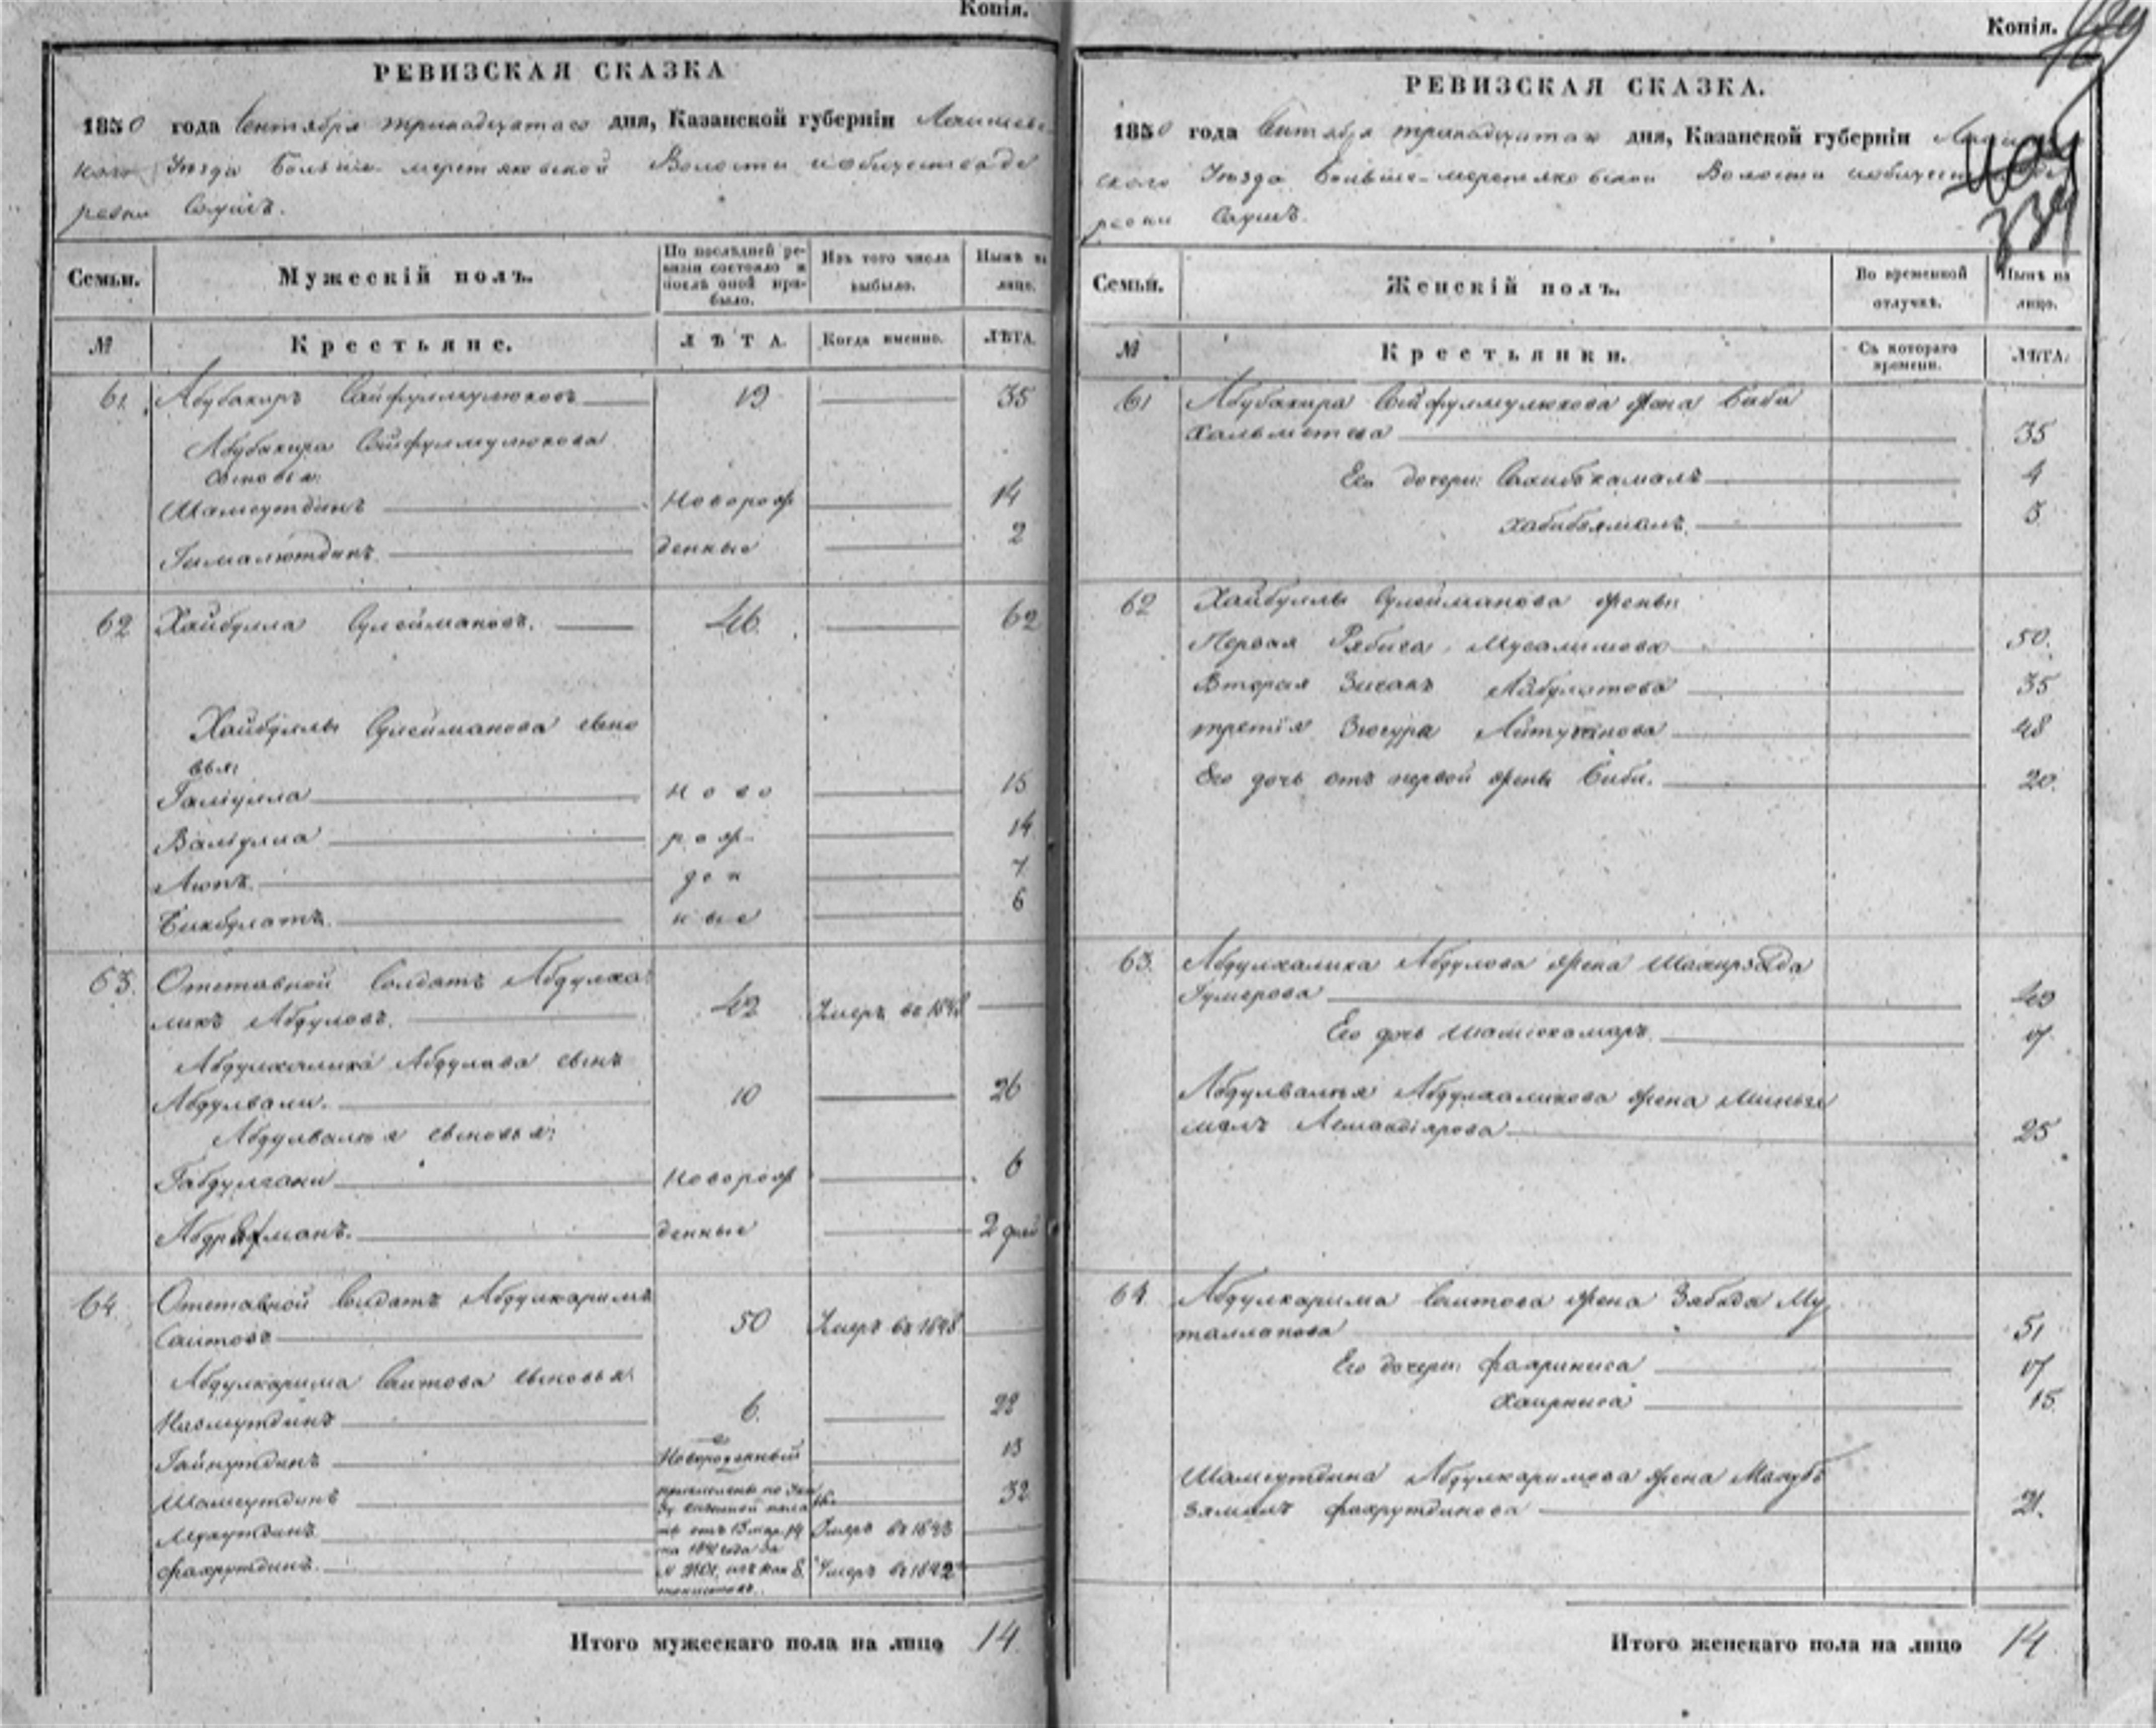 Копія.
РЕВИЗСКАЯ СКАЗКА
1850 года Сентября тринадцатаго дня, Казанской губерніи Лаишевс
каго Уѣзда Больше-меретяковской Волости и общества де
ревни
Семьи.
Мужескій полъ.
По послѣдней ре-
визіи состояло и
послѣ оной при-
было.
Изъ того числа
выбыло.
Нынѣ на
лицо.
№
Крестьяне.
ЛѢТА.
Когда именно.
ЛѢТА.
61. Абубакиръ Сайфулмулюковъ 19 35
Абубакира Сайфулмулюкова
сыновья:
Шамсутдинъ Новорож 14
Гималютдинъ. денные 2
62 Хайбулла Сулеймановъ. 46. 62
Хайбуллы Сулейманова сыно
вья:
Галіулла Ново 15
Валіулла рож- 14
ден 7
Бикбулатъ. ные 6
63. Отставной Солдатъ Абдулха
ликъ Абдуловъ. 42 Умеръ въ 1848
Абдулхалика Абдулова сынъ
Абдулвали. 10 26
Абдулвалія сыновья:
Габдулгани Новорож 6
Абдрахманъ. денные 2 дней
64. Отставной Солдатъ Абдулкаримъ
Саитовъ 50 Умеръ въ 1848
Абдулкарима Саитова сыновья:
Низмутдинъ 6. 22
Гайнутдинъ Новорожденный 13
Шамсутдинъ 16. 32
Умеръ въ 1843
Фахрутдинъ. 8. Умеръ въ 1842
Итого мужескаго пола на лицо 14
Копія.
339
РЕВИЗСКАЯ СКАЗКА.
1850 года Сентября тринадцатаго дня, Казанской губерніи Лаишев
скаго Уѣзда Больше-меретяковской Волости и общества де
ревни
Семьи.
Женскій полъ.
Во временной
отлучкѣ.
Нынѣ на
лицо.
№
Крестьянки.
Съ котораго
времени.
ЛѢТА.
61 Абубакира Сайфулмулюкова жена Биби
Хальметева 35
Его дочери: Сахибжамалъ 4
Хабибямалъ. 3.
62 Хайбуллы Сулейманова жены:
Первая Рябига Мусалимова 50.
Вторая Айбулатова 35
третія Зюгура 48
Его дочь отъ первой жены Биби. 20.
63. Абдулхалика Абдулова жена
Гумерова 49
Его дочь Шамсикамаръ 17
Абдулвалія Абдулхаликова жена Миньга
малъ 25
64. Абдулкарима Саитова жена Зябида Му
таллапова 51
Его дочери: Фахриниса 17
Хаирниса 15.
Шамсутдина Абдулкаримова жена Магуб
зямалъ Фахрутдинова 21.
Итого женскаго пола на лицо 14